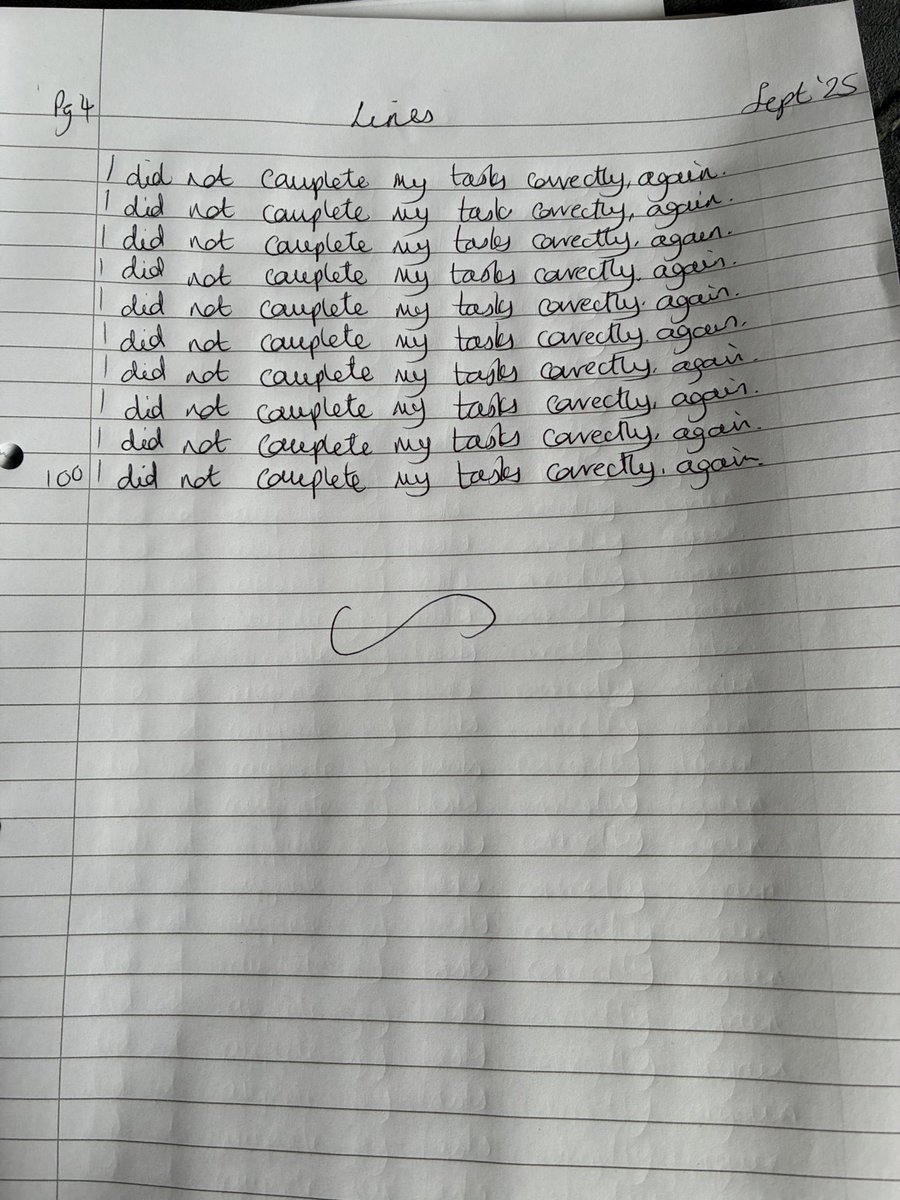 Pg 4 Lines Sept '25
I did not complete my tasks correctly, again.
I did not complete my task correctly, again.
I did not complete my tasks correctly, again.
I did not complete my tasks correctly. again.
I did not complete my tasks correctly. again.
I did not complete my tasks correctly. again.
I did not complete my tasks correctly. again.
I did not complete my tasks correctly, again.
I did not complete my tasks correctly, again.
100 I did not complete my tasks correctly, again.